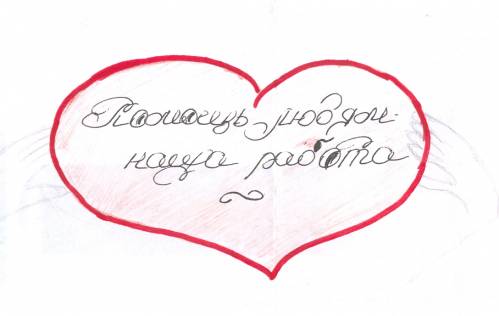 Помощь людям -
наша работа